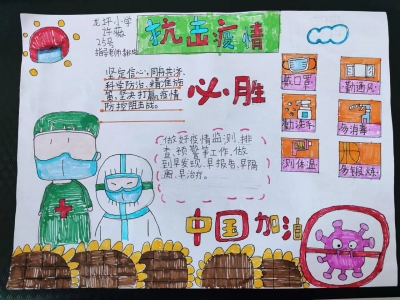 龙坪小学
25号
抗击疫情
坚定信心,同舟共济,
科学防治,精准施
策,坚决打赢疫情
防控阻击战。
必胜
戴口罩
勤通风
勤洗手
多消毒
测体温
多锻炼
做好疫情监测、排
查、预警等工作,做
到早发现、早报告、早隔
离、早治疗。
中国加油